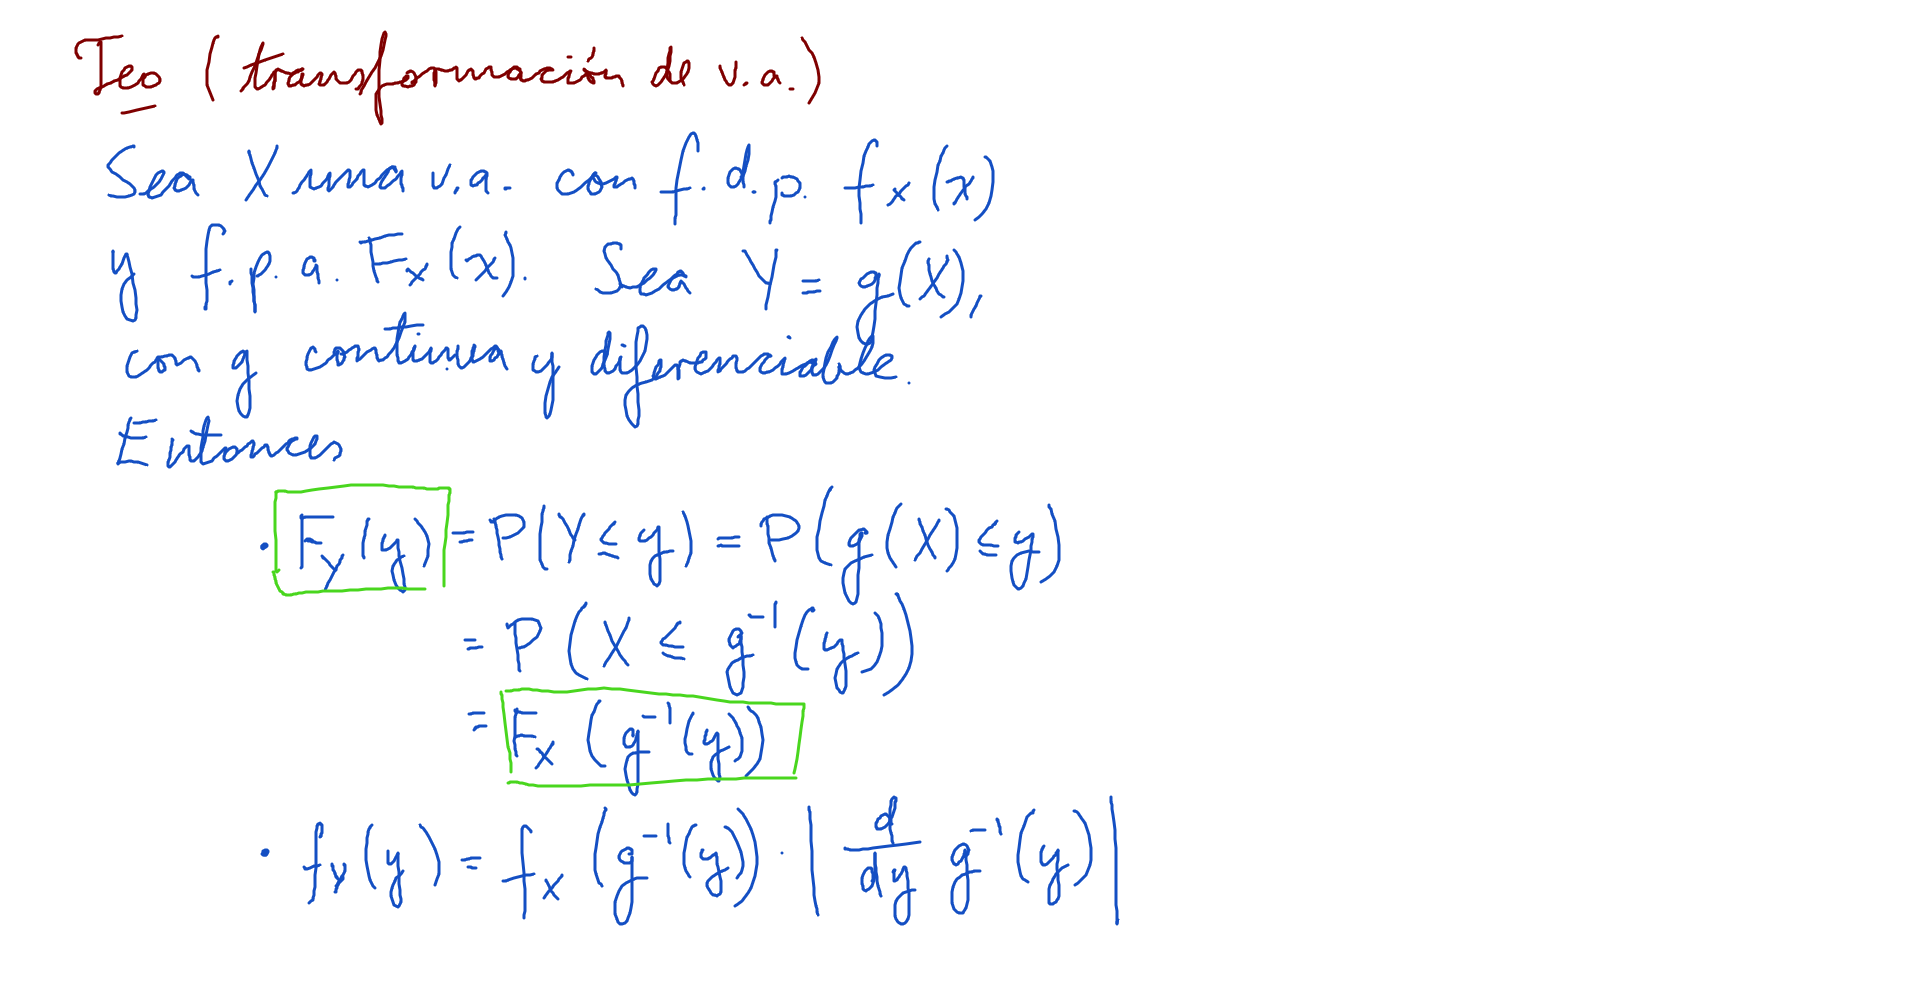 Teo (transformación de v.a.)
Sea X una v.a. con f.d.p. f_X(x)
y f.p.a. F_X(x). Sea Y = g(X),
con g continua y diferenciable.
Entonces
· F_Y(y) = P(Y ≤ y) = P(g(X) ≤ y)
= P(X ≤ g^{-1}(y))
= F_X(g^{-1}(y))
· f_Y(y) = f_X(g^{-1}(y)) · | d/dy g^{-1}(y) |